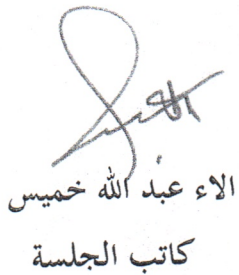 الاء عبد الله خميس
كاتب الجلسة